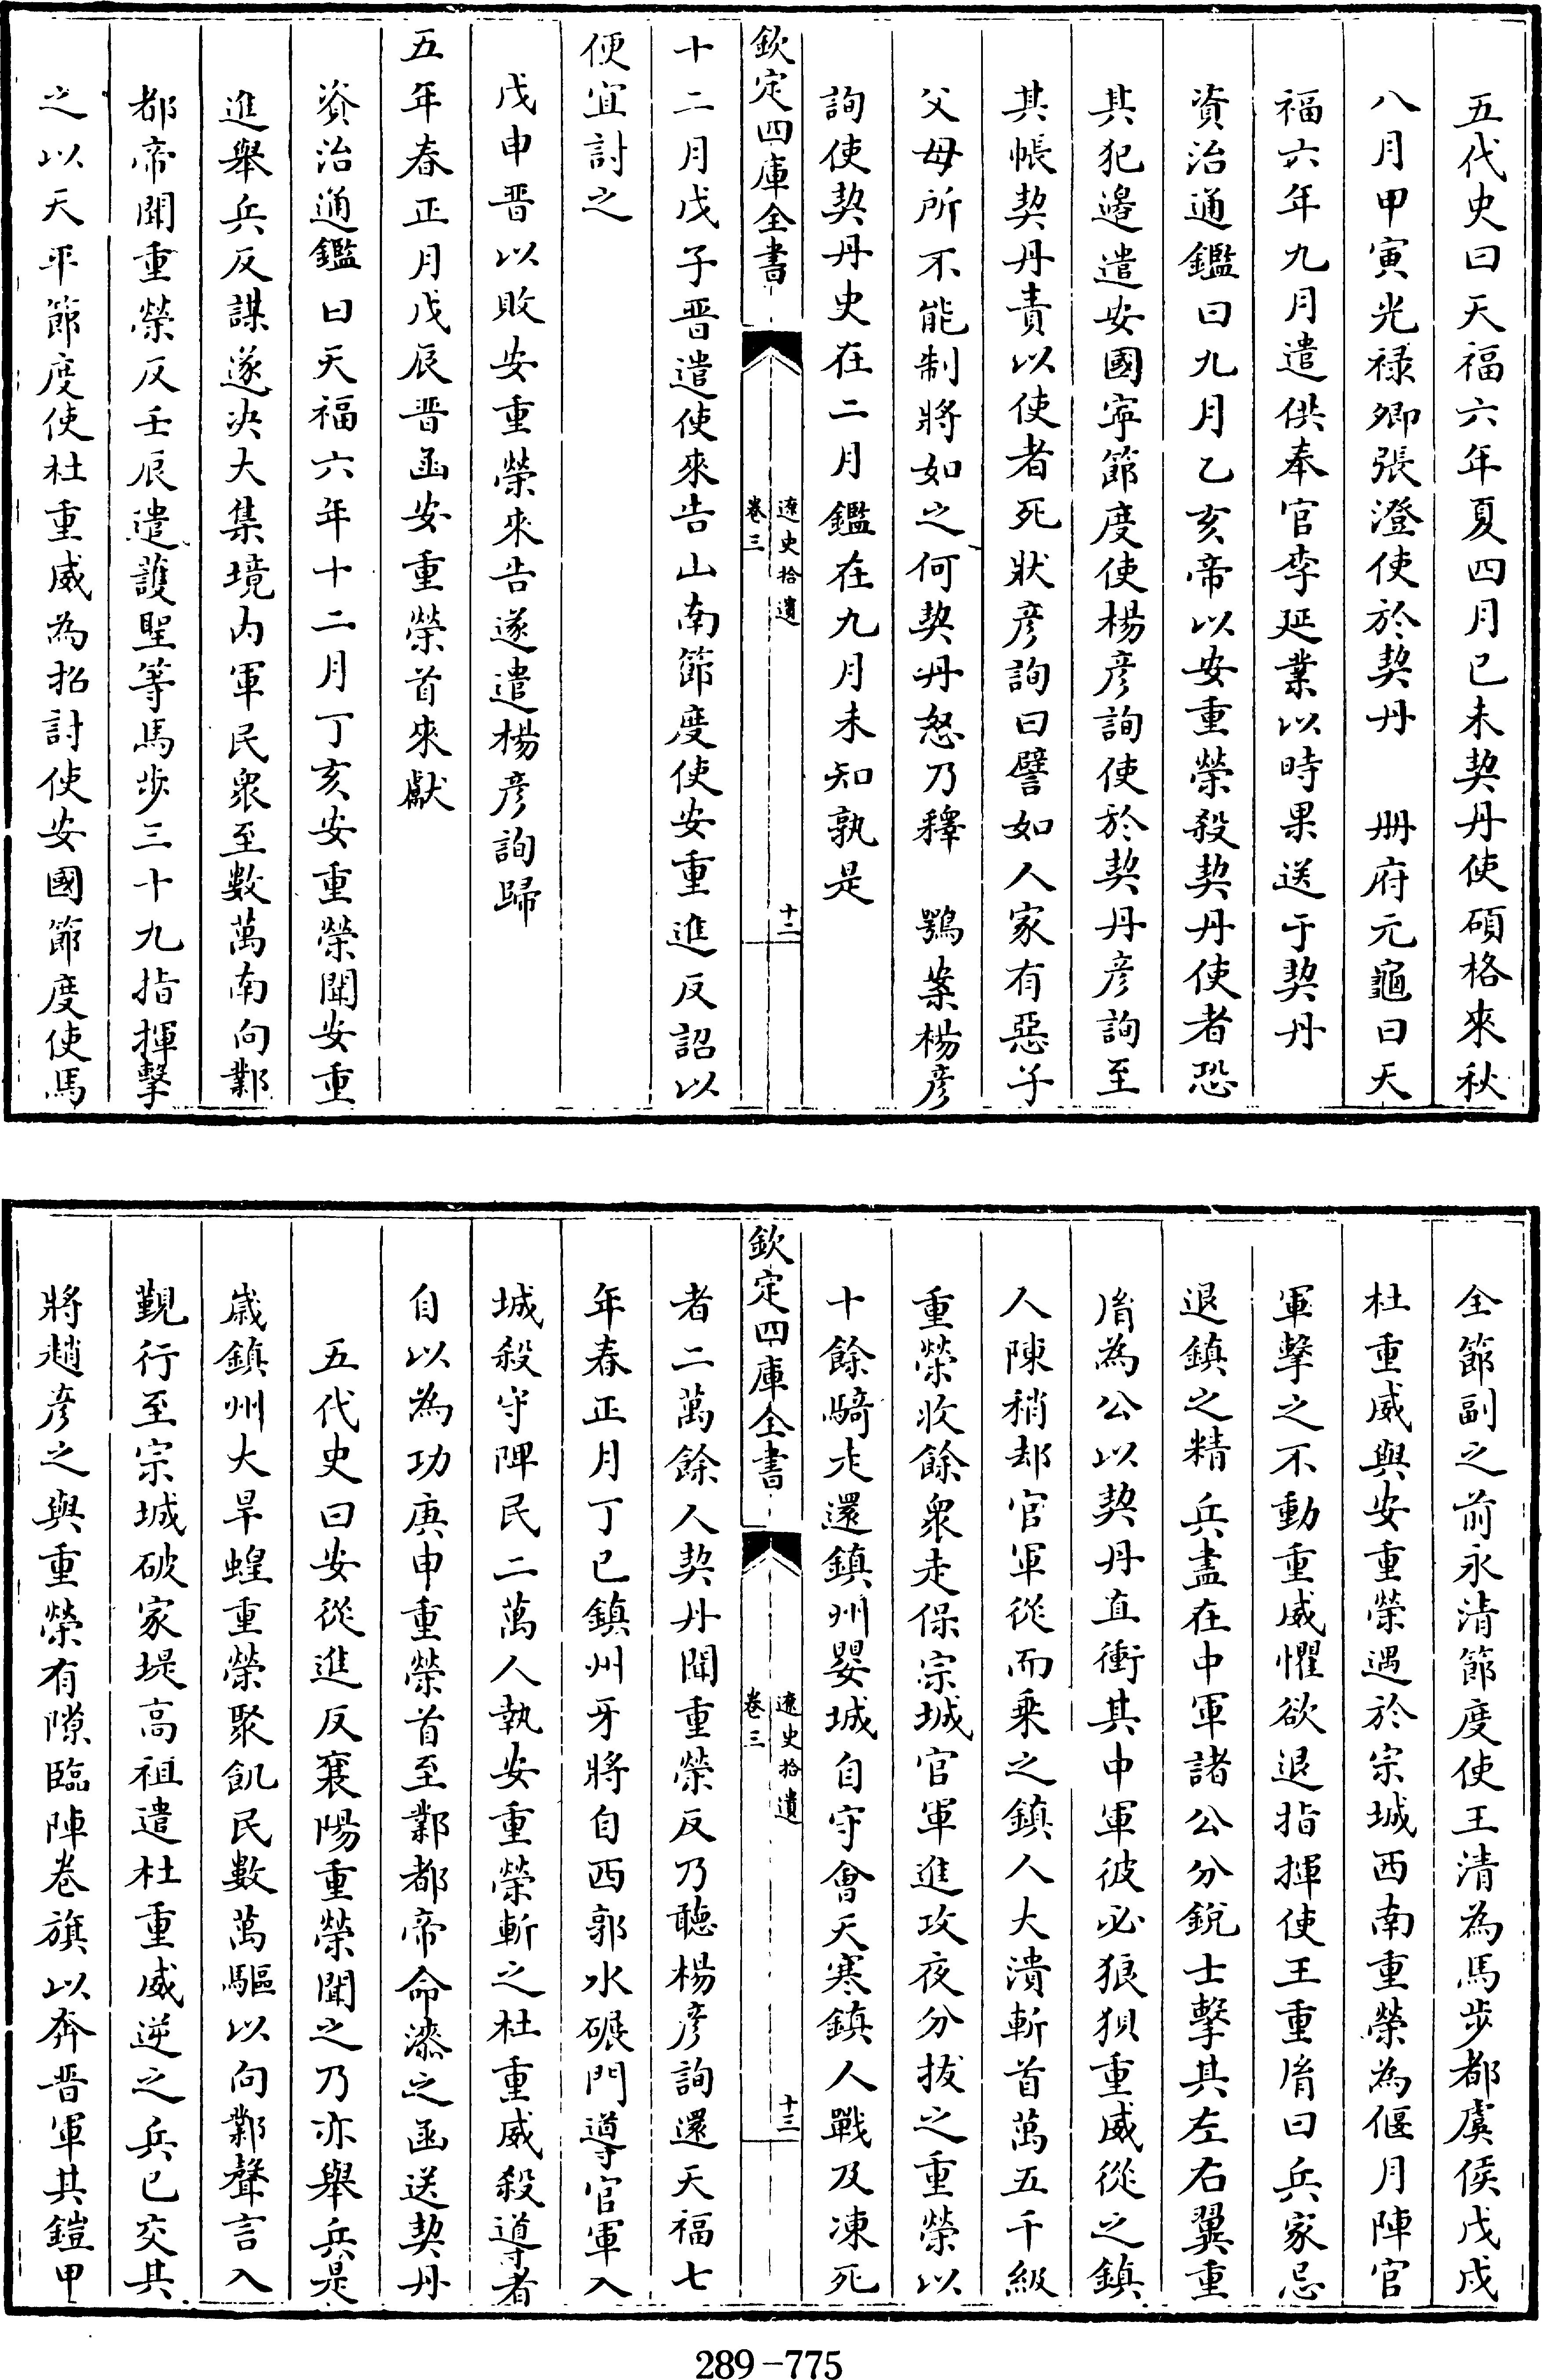 五代史曰天福六年夏四月己未契丹使碩格來秋
八月甲寅光禄卿張澄使於契丹　册府元龜曰天
福六年九月遣供奉官李延業以時果送于契丹
資治通鑑曰九月乙亥帝以安重榮殺契丹使者恐
其犯邊遣安國寧節度使楊彦詢使於契丹彦詢至
其帳契丹責以使者死狀彦詢曰譬如人家有惡子
父母所不能制將如之何契丹怒乃釋　鶚案楊彦
詢使契丹史在二月鑑在九月未知孰是
欽定四庫全書
遼史拾遺
卷三
十二
十二月戊子晋遣使來告山南節度使安重進反詔以
便宜討之
戊申晋以敗安重榮來告遂遣楊彦詢歸
五年春正月戊辰晋函安重榮首來獻
資治通鑑曰天福六年十二月丁亥安重榮聞安重
進舉兵反謀遂决大集境内軍民衆至數萬南向鄴
都帝聞重榮反壬辰遣護聖等馬步三十九指揮擊
之以天平節度使杜重威為招討使安國節度使馬
全節副之前永清節度使王清為馬步都虞侯戊戌
杜重威與安重榮遇於宗城西南重榮為偃月陣官
軍擊之不動重威懼欲退指揮使王重𦙍曰兵家忌
退鎮之精兵盡在中軍諸公分銳士擊其左右翼重
𦙍為公以契丹直衝其中軍彼必狼狽重威從之鎮
人陳稍却官軍從而乘之鎮人大潰斬首萬五千級
重榮收餘衆走保宗城官軍進攻夜分拔之重榮以
十餘騎走還鎮州嬰城自守會天寒鎮人戰及凍死
欽定四庫全書
遼史拾遺
卷三
十三
者二萬餘人契丹聞重榮反乃聽楊彦詢還天福七
年春正月丁巳鎮州牙將自西郭水碾門導官軍入
城殺守陴民二萬人執安重榮斬之杜重威殺導者
自以為功庚申重榮首至鄴都帝命漆之函送契丹
五代史曰安從進反襄陽重榮聞之乃亦舉兵是
歲鎮州大旱蝗重榮聚飢民數萬驅以向鄴聲言入
覲行至宗城破家堤高祖遣杜重威逆之兵已交其
將趙彦之與重榮有隙臨陣卷旗以奔晋軍其鎧甲
289-775